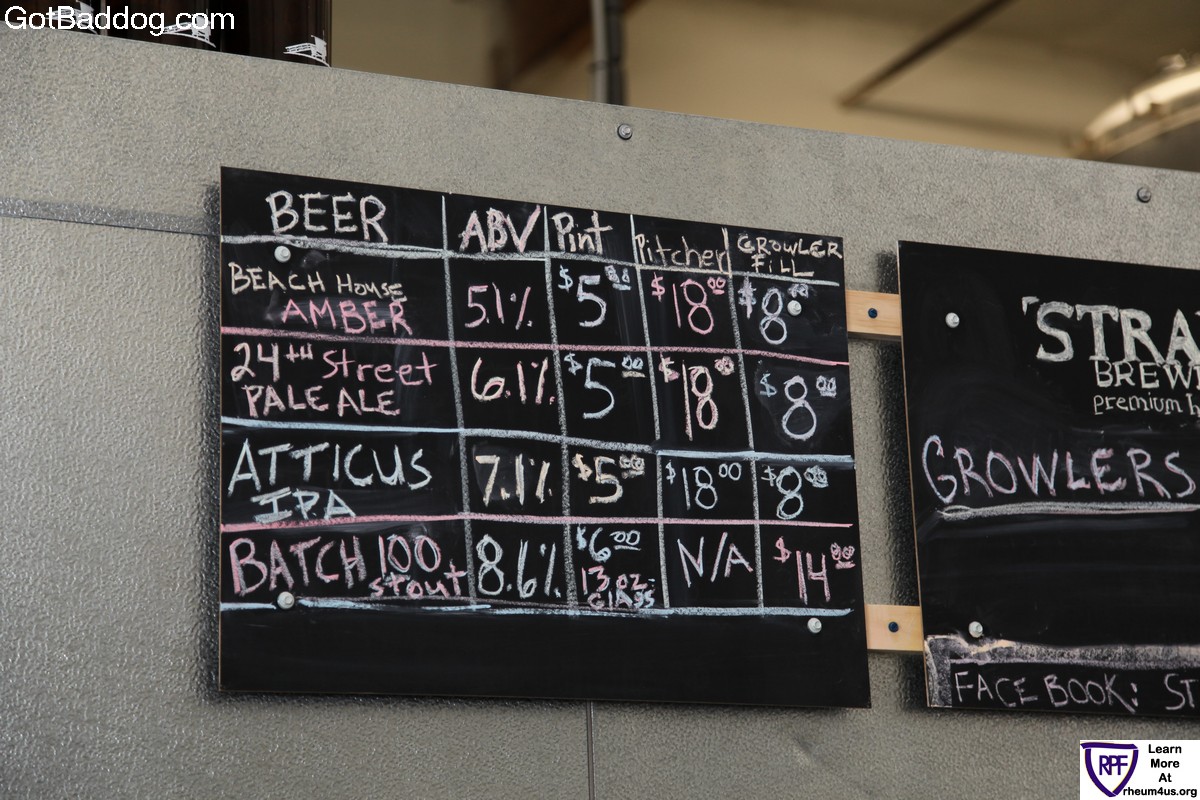 GotBaddog.com
BEER ABV Pint Pitcher GROWLER FILL
BEACH House AMBER 5.1% $5.00 $18.00 $8.00
24TH Street PALE ALE 6.1% $5.00 $18.00 $8.00
ATTICUS IPA 7.1% $5.00 $18.00 $8.00
BATCH 100 stout 8.6% $6.00 13 oz. GLASS N/A $14.00
"STRA
BREW
premium
GROWLERS
FACEBOOK: ST
RPF
Learn
More
At
rheum4us.org